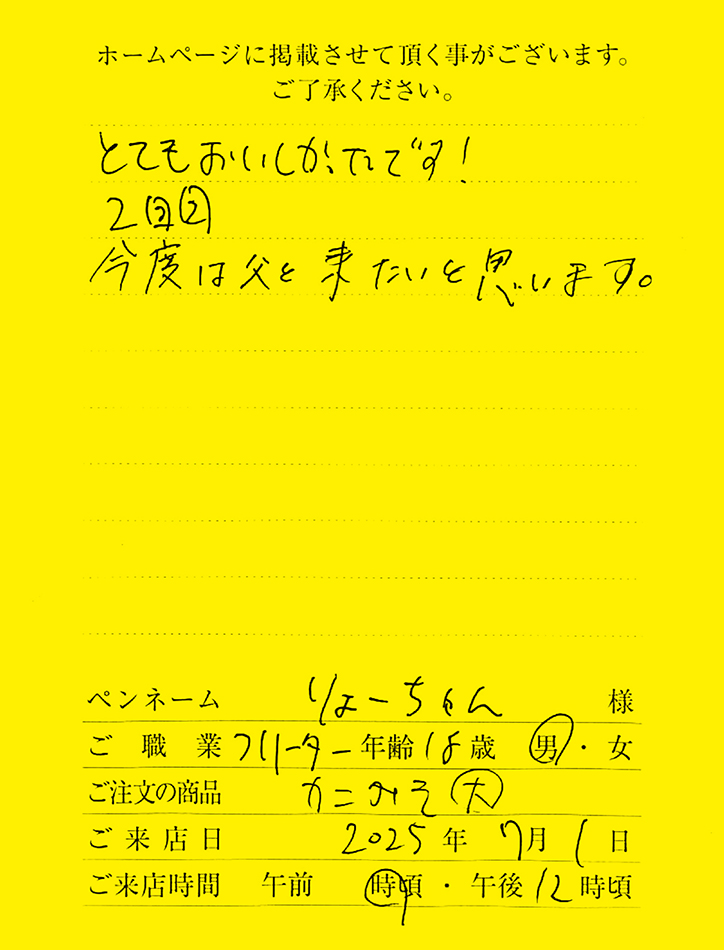 ホームページに掲載させて頂く事がございます。
ご了承ください。
とてもおいしかったです!
2回②
今度は父と来たいと思います。
ペンネーム りょーちゃん 様
ご職業 フリーター 年齢 18 歳 男・女
ご注文の商品 カニみそ 大
ご来店日 2025年 7月 1日
ご来店時間 午前 時頃・午後 12 時頃